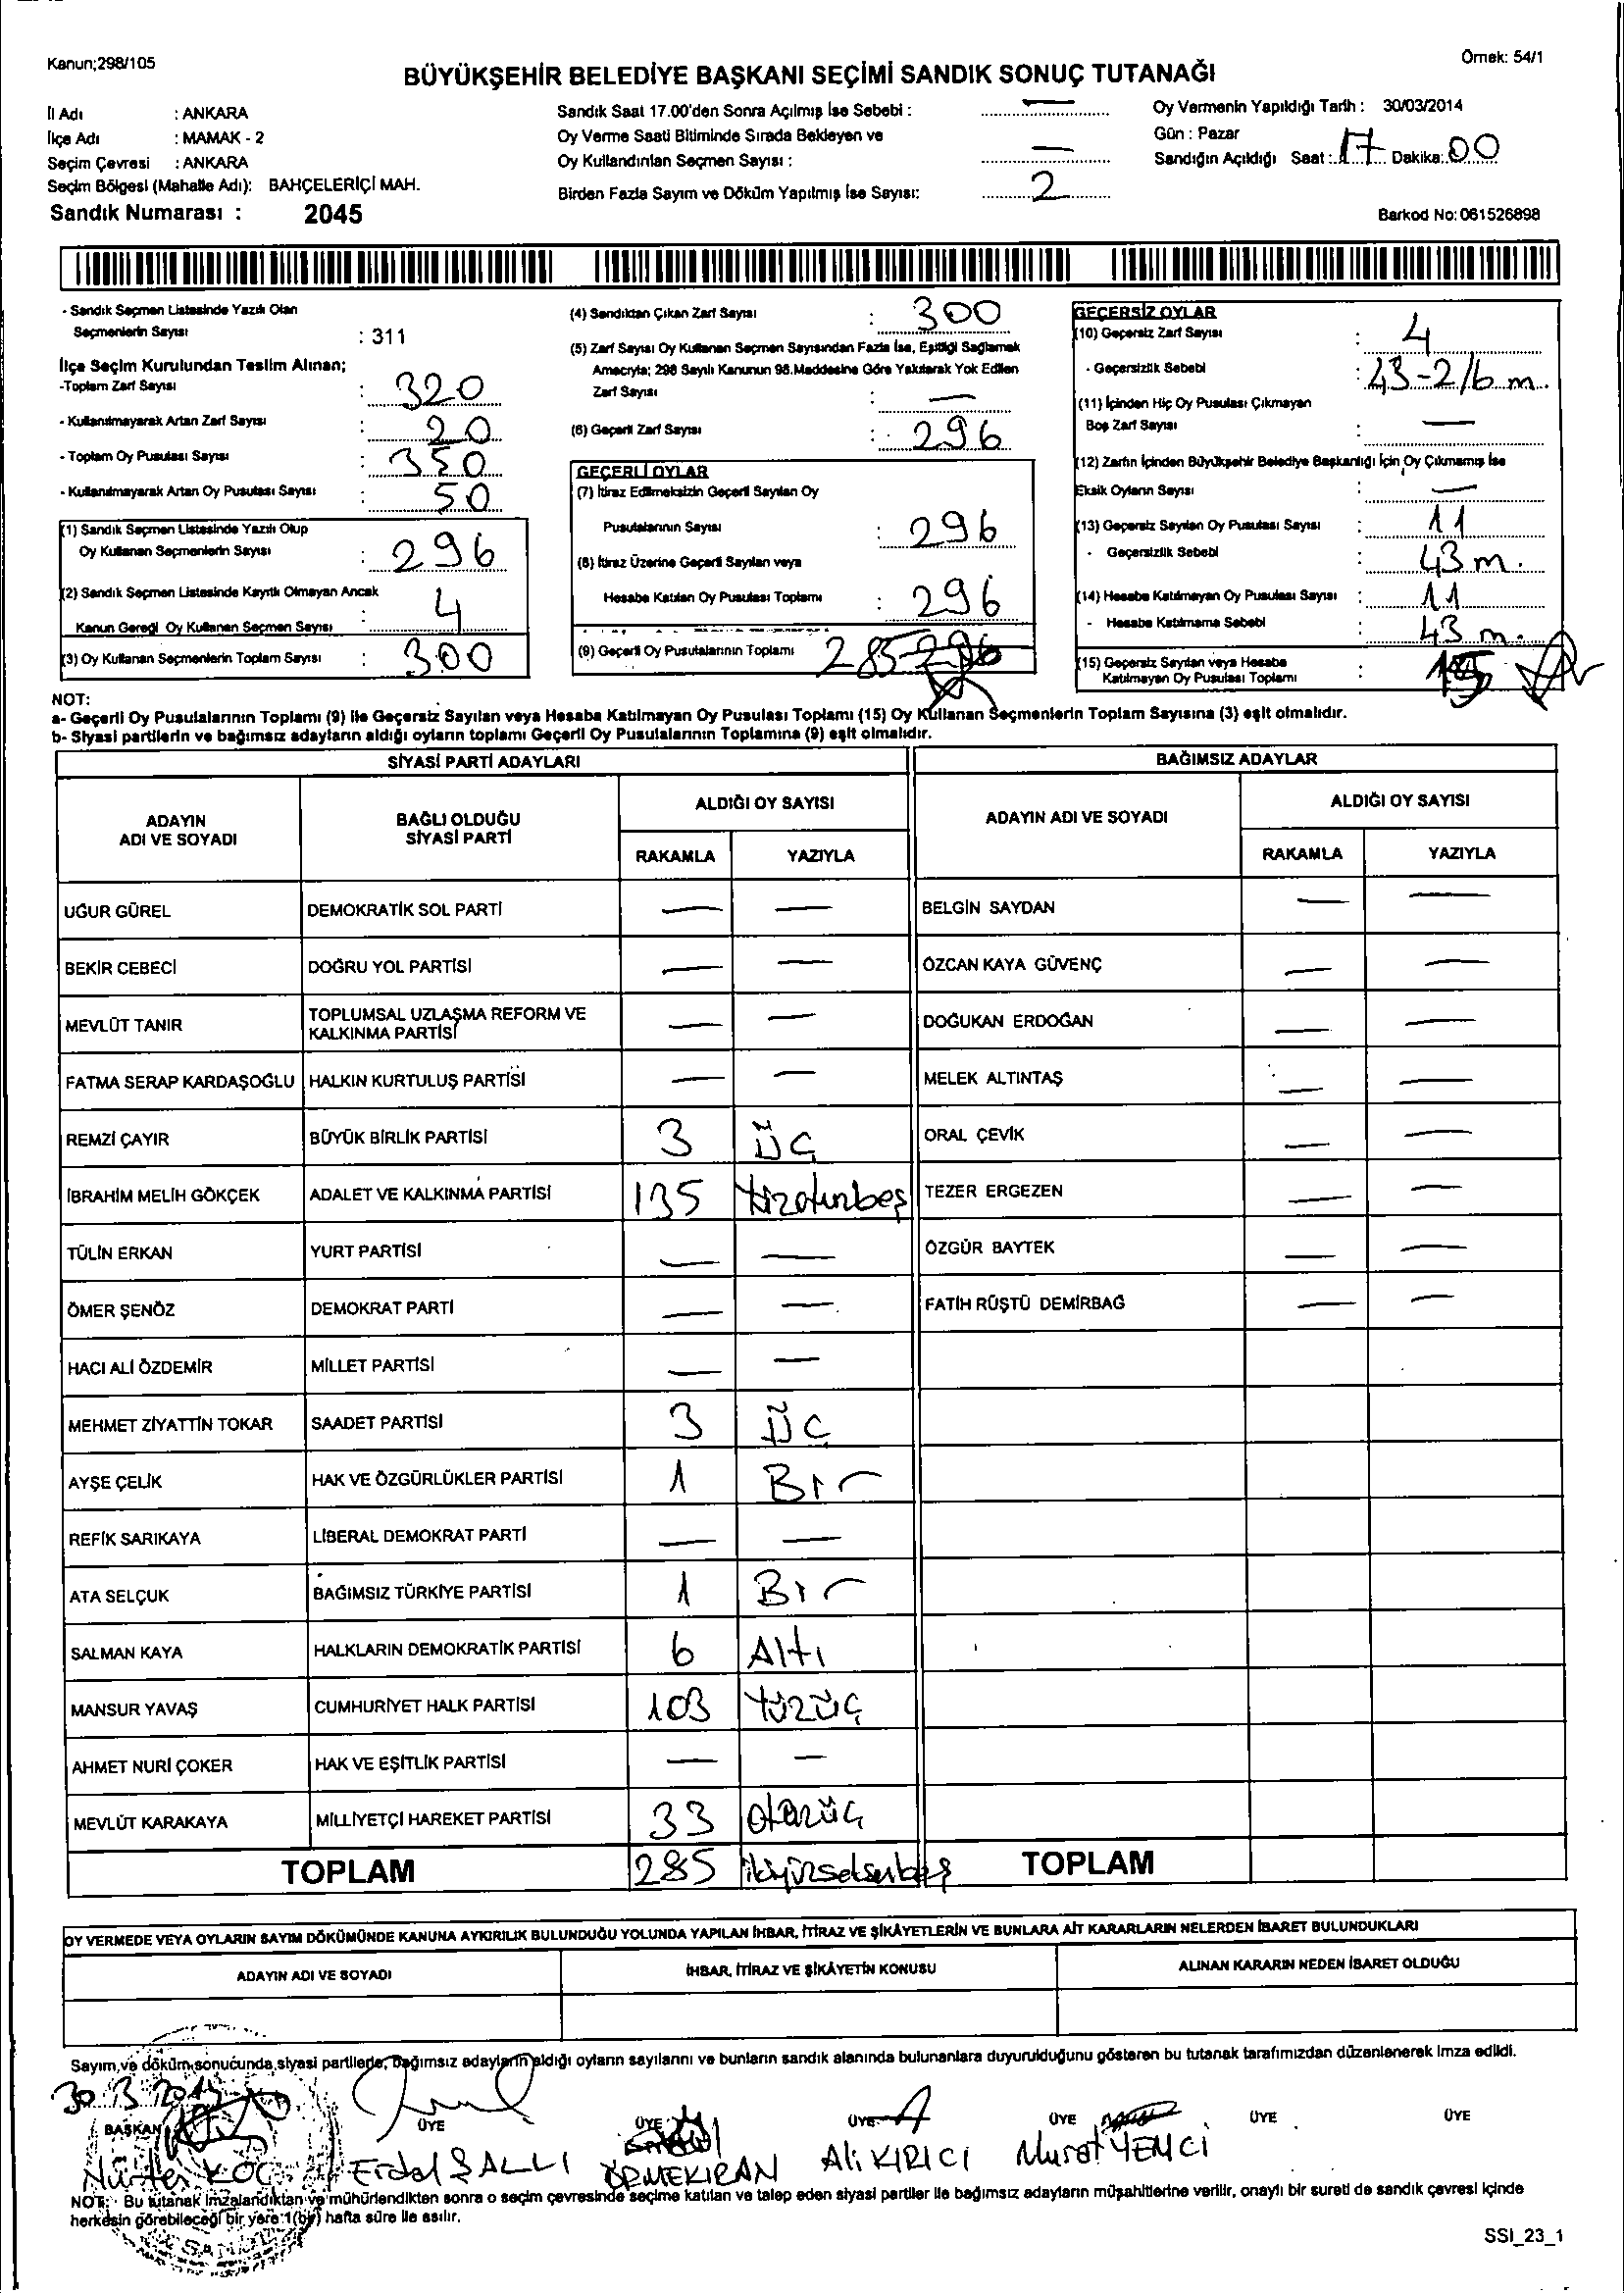 Kanun;298/105
Örnek: 54/1
BÜYÜKŞEHİR BELEDİYE BAŞKANI SEÇİMİ SANDIK SONUÇ TUTANAĞI
İl Adı : ANKARA
İlçe Adı : MAMAK - 2
Seçim Çevresi : ANKARA
Seçim Bölgesi (Mahalle Adı): BAHÇELERİÇİ MAH.
Sandık Numarası : 2045
Sandık Saat 17.00'den Sonra Açılmış İse Sebebi : —
Oy Verme Saati Bitiminde Sırada Bekleyen ve
Oy Kullandırılan Seçmen Sayısı : —
Birden Fazla Sayım ve Döküm Yapılmış İse Sayısı: 2
Oy Vermenin Yapıldığı Tarih : 30/03/2014
Gün : Pazar
Sandığın Açıldığı Saat : 17 Dakika: 00
Barkod No: 061526898
- Sandık Seçmen Listesinde Yazılı Olan
Seçmenlerin Sayısı : 311
İlçe Seçim Kurulundan Teslim Alınan;
-Toplam Zarf Sayısı : 320
- Kullanılmayarak Artan Zarf Sayısı : 20
- Toplam Oy Pusulası Sayısı : 350
- Kullanılmayarak Artan Oy Pusulası Sayısı : 50
(1) Sandık Seçmen Listesinde Yazılı Olup
Oy Kullanan Seçmenlerin Sayısı : 296
(2) Sandık Seçmen Listesinde Kayıtlı Olmayan Ancak
Kanun Gereği Oy Kullanan Seçmen Sayısı : 4
(3) Oy Kullanan Seçmenlerin Toplam Sayısı : 300
(4) Sandıktan Çıkan Zarf Sayısı : 300
(5) Zarf Sayısı Oy Kullanan Seçmen Sayısından Fazla İse, Eşitliği Sağlamak
Amacıyla; 298 Sayılı Kanunun 98.Maddesine Göre Yakılarak Yok Edilen
Zarf Sayısı : —
(6) Geçerli Zarf Sayısı : 296
GEÇERLİ OYLAR
(7) İtiraz Edilmeksizin Geçerli Sayılan Oy
Pusulalarının Sayısı : 296
(8) İtiraz Üzerine Geçerli Sayılan veya
Hesaba Katılan Oy Pusulası Toplamı : 296
(9) Geçerli Oy Pusulalarının Toplamı 285 296
GEÇERSİZ OYLAR
(10) Geçersiz Zarf Sayısı : 4
- Geçersizlik Sebebi : 43-2/6 m.
(11) İçinden Hiç Oy Pusulası Çıkmayan
Boş Zarf Sayısı : —
(12) Zarfın İçinden Büyükşehir Belediye Başkanlığı İçin Oy Çıkmamış İse
Eksik Oyların Sayısı : —
(13) Geçersiz Sayılan Oy Pusulası Sayısı : 11
- Geçersizlik Sebebi : 43 m.
(14) Hesaba Katılmayan Oy Pusulası Sayısı : 11
- Hesaba Katılmama Sebebi : 43 m.
(15) Geçersiz Sayılan veya Hesaba
Katılmayan Oy Pusulası Toplamı : 15
NOT:
a- Geçerli Oy Pusulalarının Toplamı (9) ile Geçersiz Sayılan veya Hesaba Katılmayan Oy Pusulası Toplamı (15) Oy Kullanan Seçmenlerin Toplam Sayısına (3) eşit olmalıdır.
b- Siyasi partilerin ve bağımsız adayların aldığı oyların toplamı Geçerli Oy Pusulalarının Toplamına (9) eşit olmalıdır.
SİYASİ PARTİ ADAYLARI BAĞIMSIZ ADAYLAR
ADAYIN ADI VE SOYADI BAĞLI OLDUĞU SİYASİ PARTİ ALDIĞI OY SAYISI ADAYIN ADI VE SOYADI ALDIĞI OY SAYISI
RAKAMLA YAZIYLA RAKAMLA YAZIYLA
UĞUR GÜREL DEMOKRATİK SOL PARTİ — — BELGİN SAYDAN — —
BEKİR CEBECİ DOĞRU YOL PARTİSİ — — ÖZCAN KAYA GÜVENÇ — —
MEVLÜT TANIR TOPLUMSAL UZLAŞMA REFORM VE KALKINMA PARTİSİ — — DOĞUKAN ERDOĞAN — —
FATMA SERAP KARDAŞOĞLU HALKIN KURTULUŞ PARTİSİ — — MELEK ALTINTAŞ — —
REMZİ ÇAYIR BÜYÜK BİRLİK PARTİSİ 3 ÜÇ ORAL ÇEVİK — —
İBRAHİM MELİH GÖKÇEK ADALET VE KALKINMA PARTİSİ 135 Yüzotuzbeş TEZER ERGEZEN — —
TÜLİN ERKAN YURT PARTİSİ — — ÖZGÜR BAYTEK — —
ÖMER ŞENÖZ DEMOKRAT PARTİ — — FATİH RÜŞTÜ DEMİRBAĞ — —
HACI ALİ ÖZDEMİR MİLLET PARTİSİ — —
MEHMET ZİYATTİN TOKAR SAADET PARTİSİ 3 ÜÇ
AYŞE ÇELİK HAK VE ÖZGÜRLÜKLER PARTİSİ 1 Bir
REFİK SARIKAYA LİBERAL DEMOKRAT PARTİ — —
ATA SELÇUK BAĞIMSIZ TÜRKİYE PARTİSİ 1 Bir
SALMAN KAYA HALKLARIN DEMOKRATİK PARTİSİ 6 Altı
MANSUR YAVAŞ CUMHURİYET HALK PARTİSİ 103 Yüzüç
AHMET NURİ ÇOKER HAK VE EŞİTLİK PARTİSİ — —
MEVLÜT KARAKAYA MİLLİYETÇİ HAREKET PARTİSİ 33 otuzüç
TOPLAM 285 ikiyüzseksenbeş TOPLAM
OY VERMEDE VEYA OYLARIN SAYIM DÖKÜMÜNDE KANUNA AYKIRILIK BULUNDUĞU YOLUNDA YAPILAN İHBAR, İTİRAZ VE ŞİKÂYETLERİN VE BUNLARA AİT KARARLARIN NELERDEN İBARET BULUNDUKLARI
ADAYIN ADI VE SOYADI İHBAR, İTİRAZ VE ŞİKÂYETİN KONUSU ALINAN KARARIN NEDEN İBARET OLDUĞU
Sayım ve döküm sonucunda, siyasi partilerle, bağımsız adayların aldığı oyların sayılarını ve bunların sandık alanında bulunanlara duyurulduğunu gösteren bu tutanak tarafımızdan düzenlenerek imza edildi.
30.3.2014
BAŞKAN ÜYE ÜYE ÜYE ÜYE ÜYE ÜYE
Nurten KOÇ Erdal ŞALLI ÖRMEKIRAN Ali KIRICI Murat YEMCİ
NOT: Bu tutanak imzalandıktan ve mühürlendikten sonra o seçim çevresinde seçime katılan ve talep eden siyasi partiler ile bağımsız adayların müşahitlerine verilir, onaylı bir sureti de sandık çevresi içinde
herkesin görebileceği bir yere 1(bir) hafta süre ile asılır.
SSI_23_1